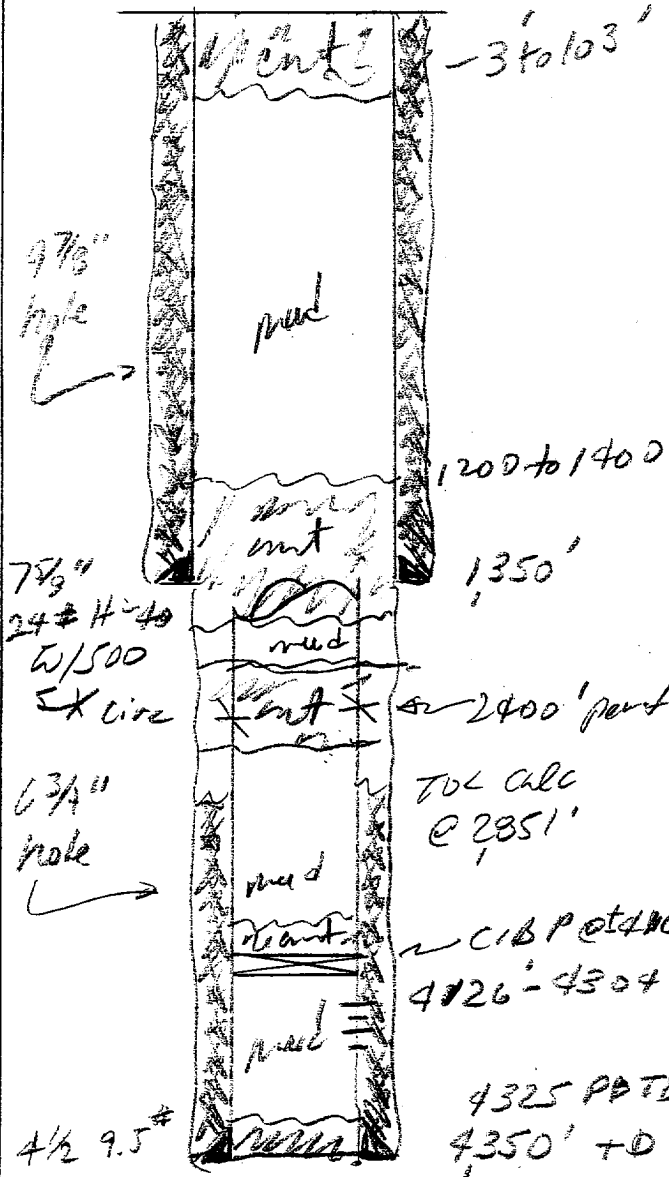 cmt
- 3' to 103'
9 7/8"
hole
mud
1200 to 1400
cmt
1,350'
7 5/8"
24# H-40
W/500
SX circ
mud
cmt
2400' perf
6 3/4"
hole
TOC Calc
@ 2,851'
mud
cmt
CIBP @ ±
4126' - 4304
mud
4325 PBTD
4 1/2 9.5#
4,350' TD